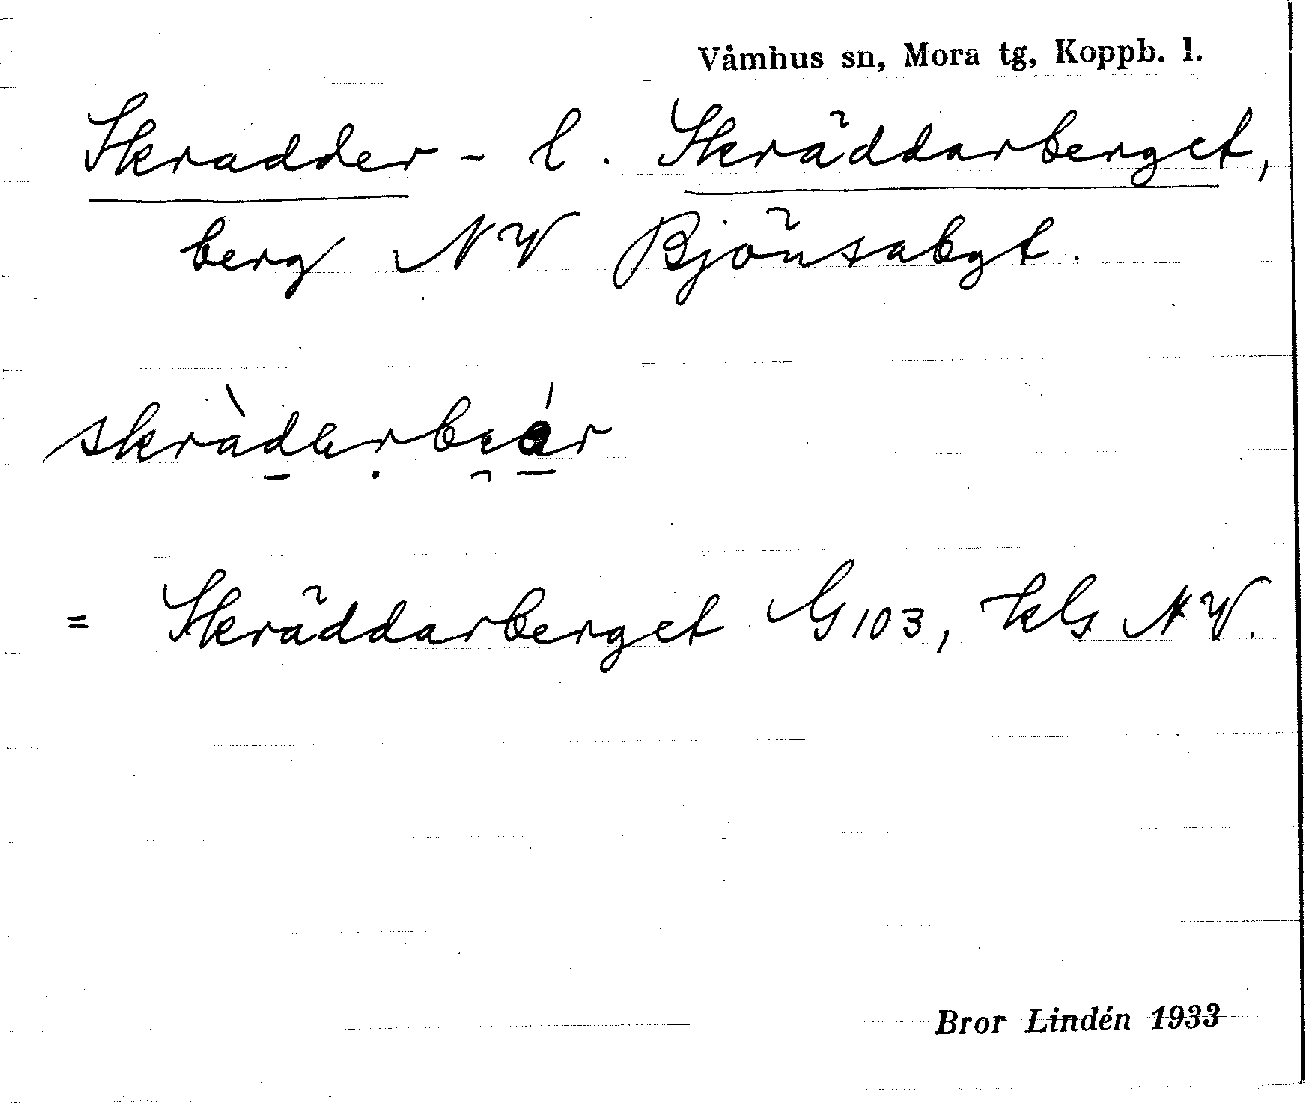 Våmhus sn, Mora tg, Koppb. l.
Skradder- l. Skräddarberget,
berg NV Bjönsabgt.
= Skräddarberget G103, kls NV.
Bror Lindén 1933